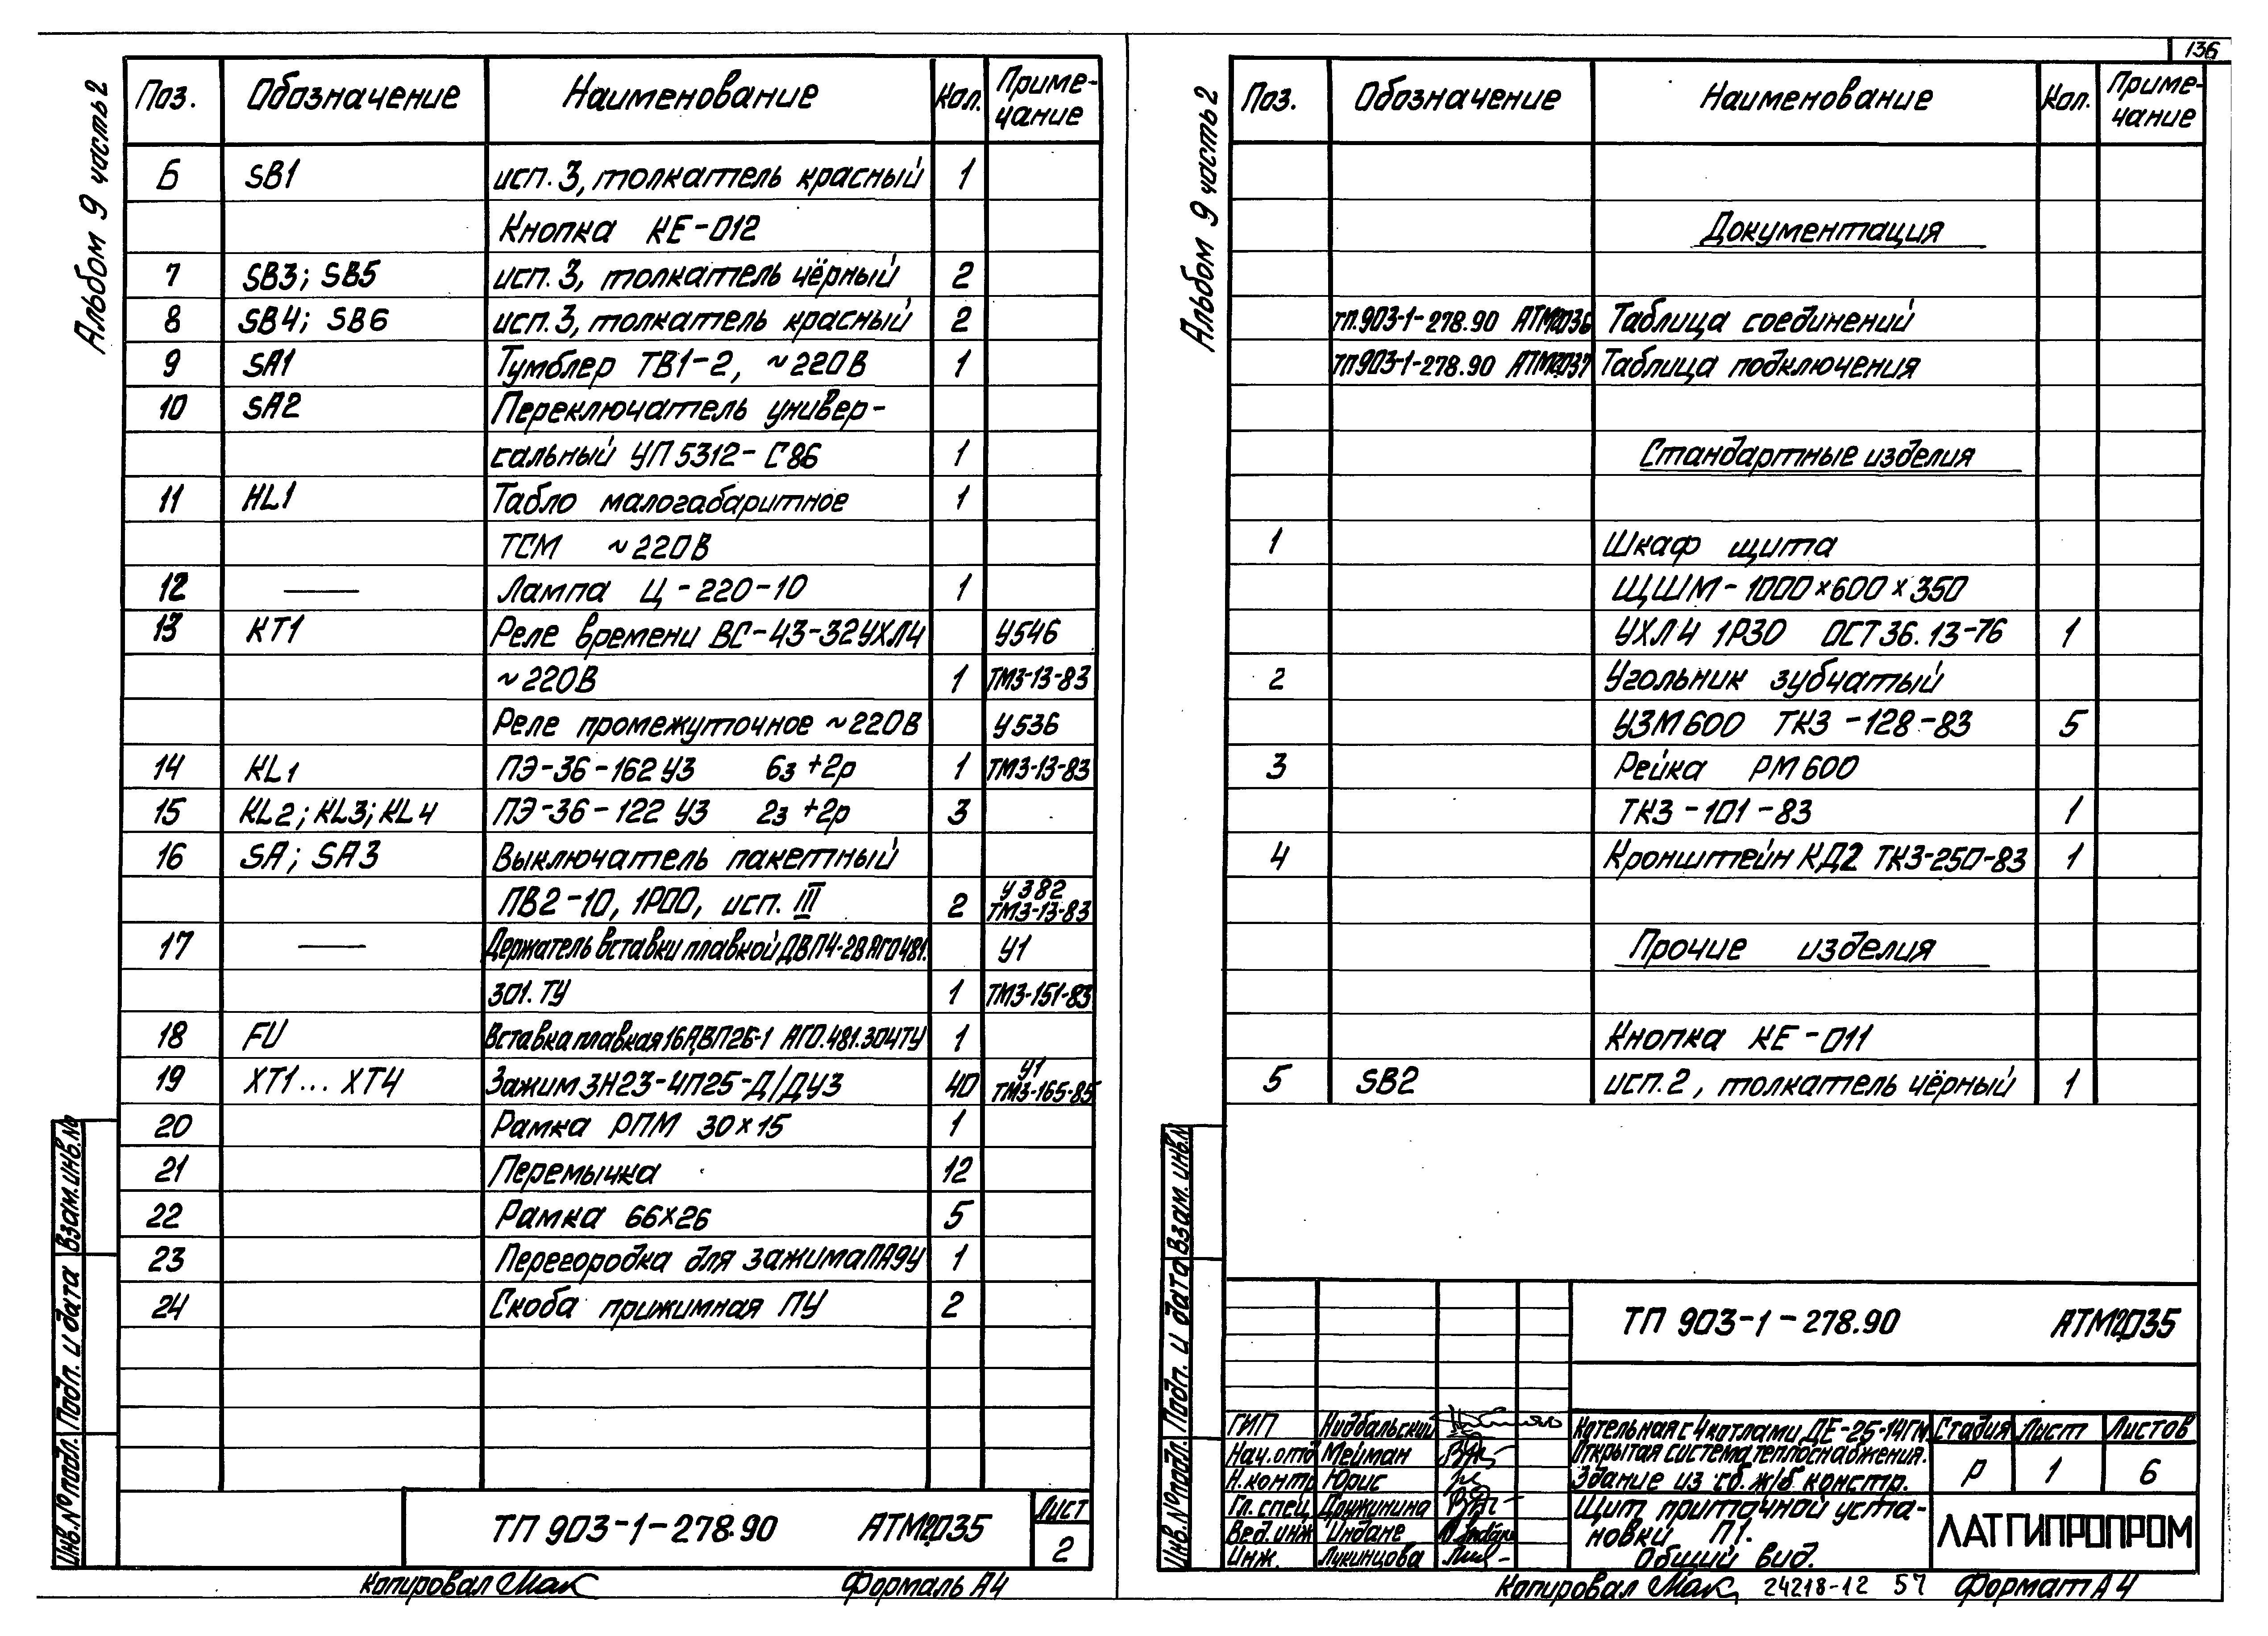 136
Альбом 9 часть 2
Поз. Обозначение Наименование Кол. Приме-
чание
6 SB1 исп. 3, толкатель красный 1
Кнопка КЕ-012
7 SB3; SB5 исп. 3, толкатель чёрный 2
8 SB4; SB6 исп. 3, толкатель красный 2
9 SA1 Тумблер ТВ1-2, ~220В 1
10 SA2 Переключатель универ-
сальный УП5312-С86 1
11 HL1 Табло малогабаритное 1
ТСМ ~220В
12 — Лампа Ц-220-10 1
13 КТ1 Реле времени ВС-43-32УХЛ4 У546
~220В 1 ТМ3-13-83
Реле промежуточное ~220В У536
14 KL1 ПЭ-36-162 У3 6з+2р 1 ТМ3-13-83
15 KL2; KL3; KL4 ПЭ-36-122 У3 2з+2р 3
16 SA; SA3 Выключатель пакетный
ПВ2-10, 1Р00, исп. III 2 У382 ТМ3-13-83
17 — Держатель вставки плавкой ДВП4-2В АГО481. У1
301.ТУ 1 ТМ3-151-83
18 FU Вставка плавкая 16А,ВП2Б-1 АГО.481.304ТУ 1
19 ХТ1... ХТ4 Зажим ЗН23-4П25-Д/ДУ3 40 У1 ТМ3-165-85
20 Рамка РПМ 30×15 1
21 Перемычка 12
22 Рамка 66×26 5
23 Перегородка для зажима ПА9У 1
24 Скоба прижимная ПУ 2
Инв.№подл. Подп. и дата Взам.инв.№
ТП 903-1-278.90 АТМ2.035
Лист
2
Копировал Мак Формать А4
Альбом 9 часть 2
Поз. Обозначение Наименование Кол. Приме-
чание
Документация
ТП.903-1-278.90 АТМ2.036 Таблица соединений
ТП903-1-278.90 АТМ2.037 Таблица подключения
Стандартные изделия
1 Шкаф щита
ЩШМ-1000×600×350
УХЛ4 1Р30 ОСТ36.13-76 1
2 Угольник зубчатый
УЗМ600 ТК3-128-83 5
3 Рейка РМ600
ТК3-101-83 1
4 Кронштейн КД2 ТК3-250-83 1
Прочие изделия
Кнопка КЕ-011
5 SB2 исп. 2, толкатель чёрный 1
Инв.№подл. Подп. и дата Взам. инв.№
ТП 903-1-278.90 АТМ2.035
ГИП Нидбальский
Нач.отд Мейман
Н.контр Юрис
Гл.спец Дружинина
Вед.инж Индане
Инж. Лукинцова
Котельная с 4 котлами ДЕ-25-14ГМ.
Открытая система теплоснабжения.
Здание из сб. ж/б констр.
Стадия Лист Листов
Р 1 6
Щит приточной уста-
новки П1.
Общий вид.
ЛАТГИПРОПРОМ
Копировал Мак 24218-12 57 Формат А4